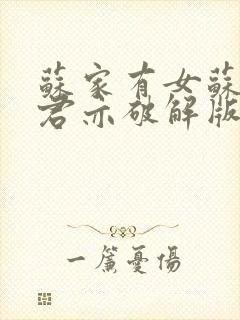 蘇家有女蘇
君亦破解版
一簾憂傷